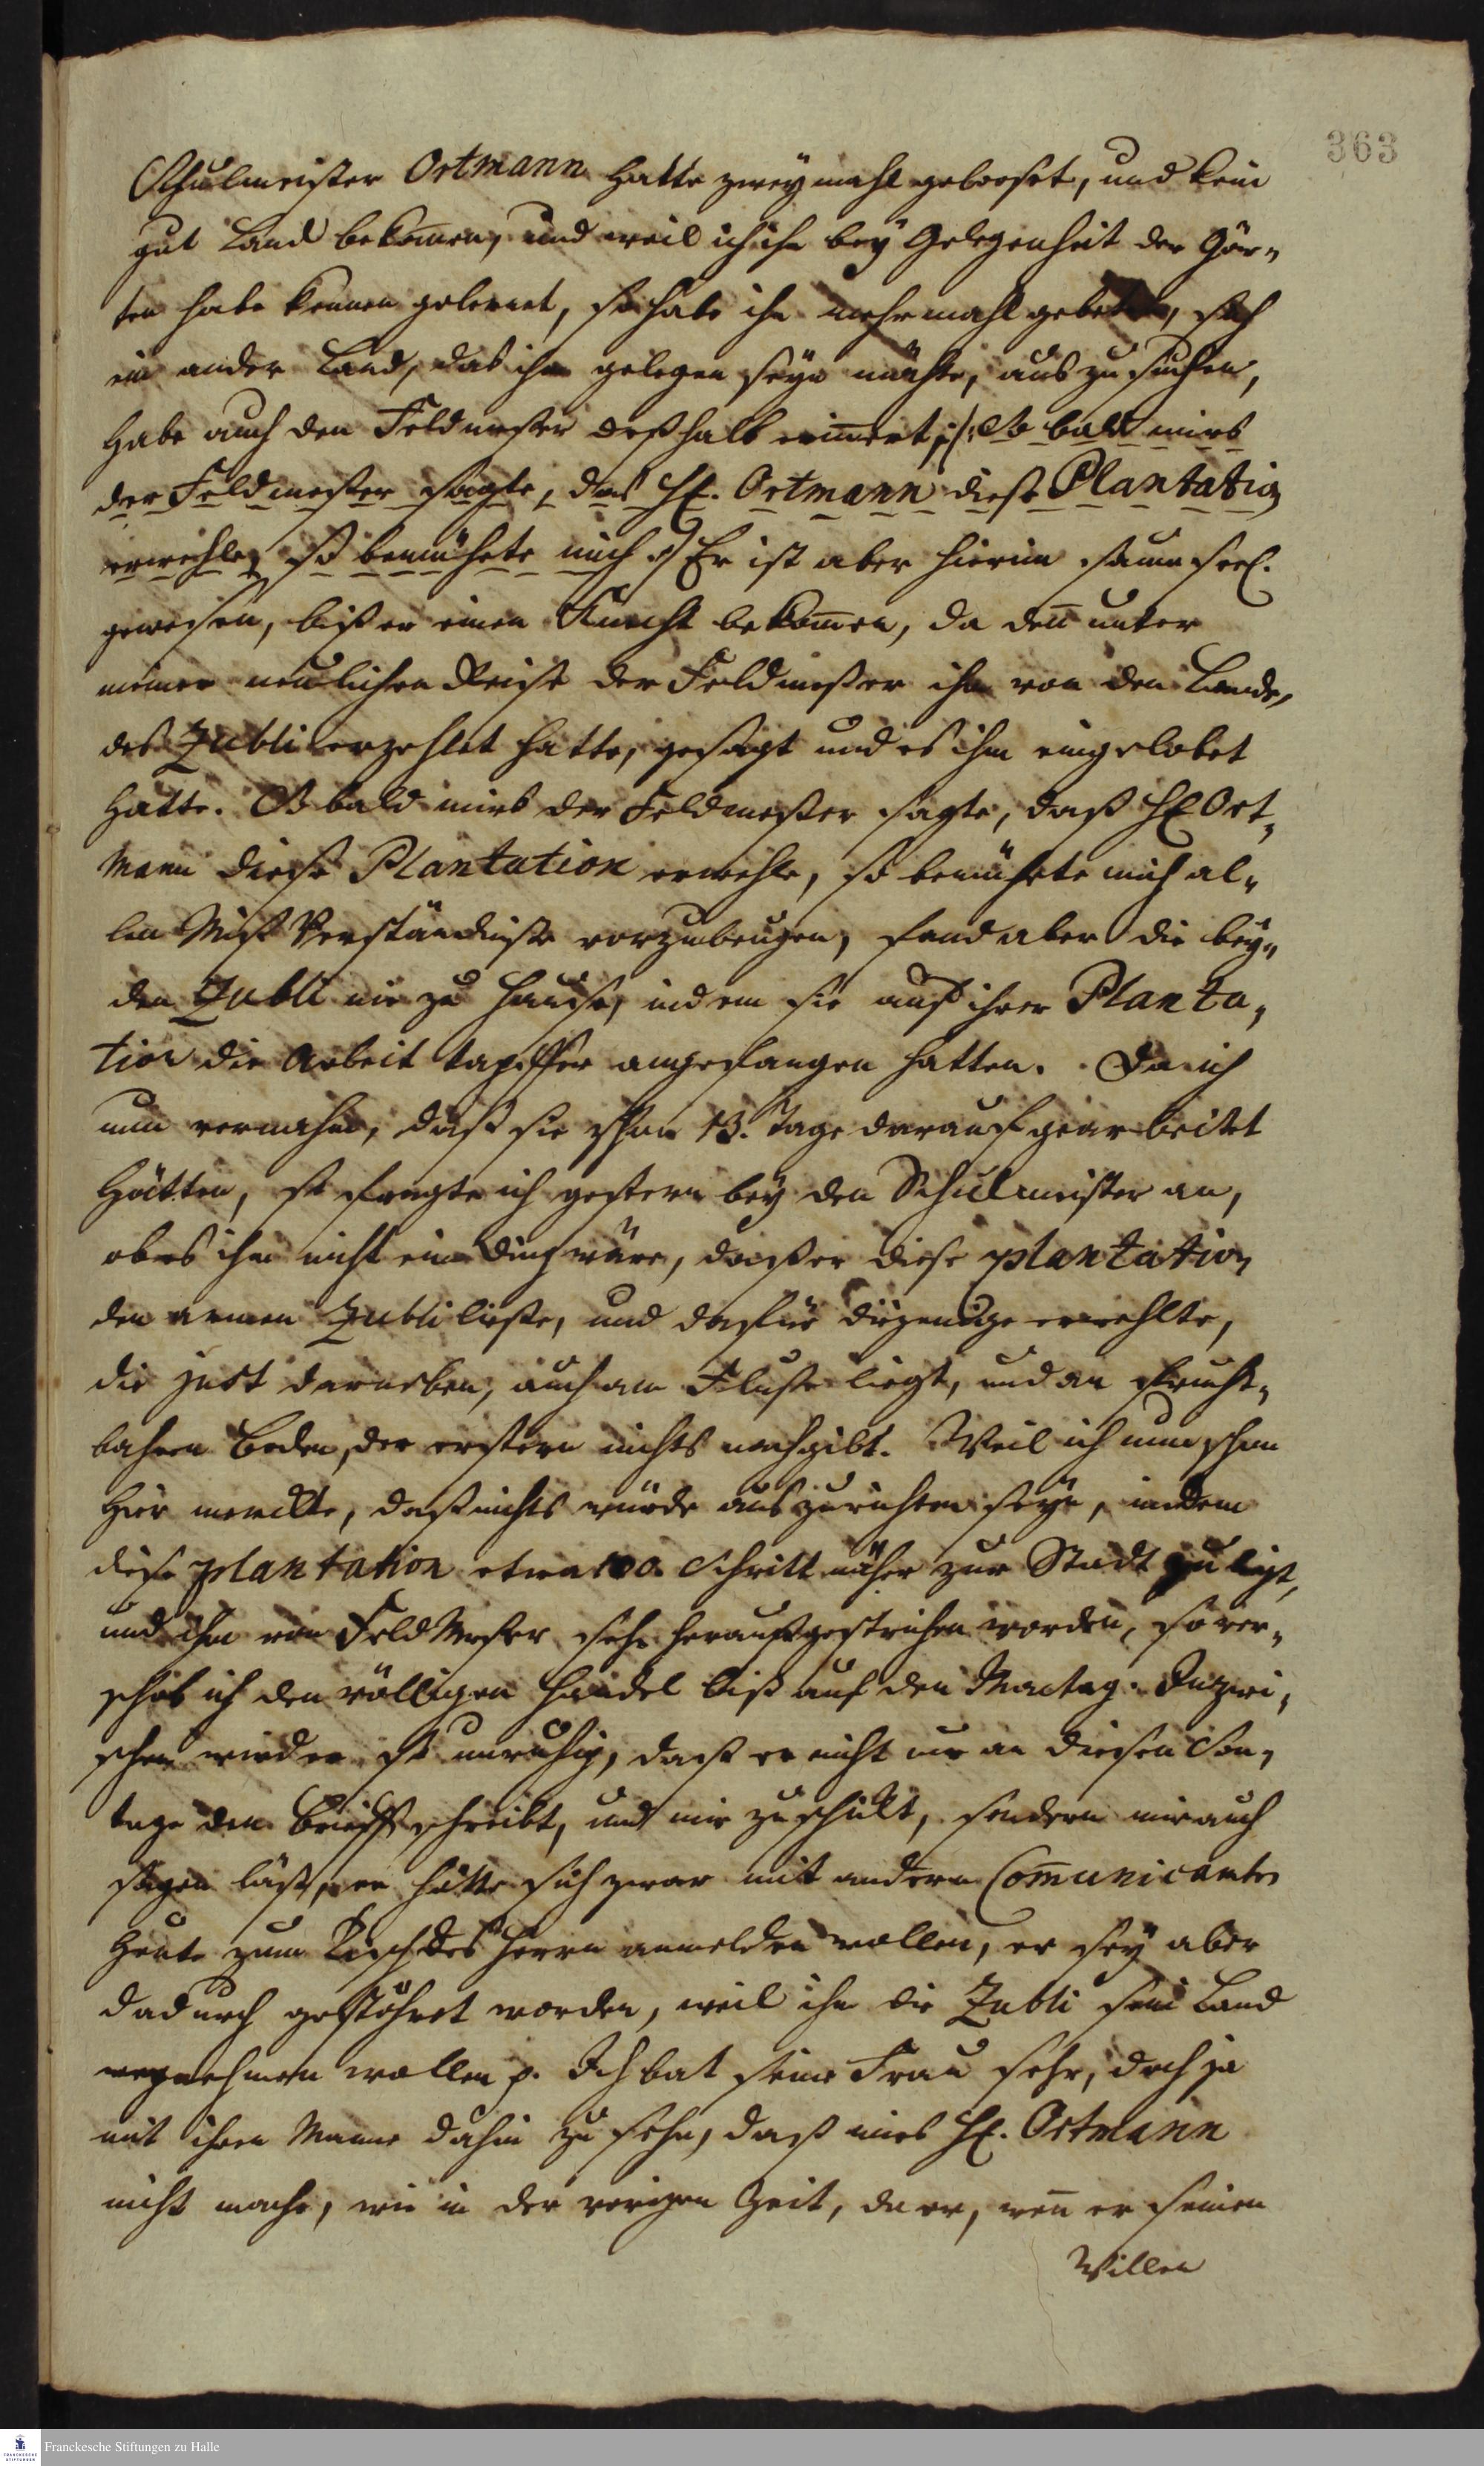 363
Schulmeister Ortmann hatte zweymahl geloost, und kein
gut Land bekom̄en, und weil ich ihn bey Gelegenheit der Gär„
ten habe kennen gelernet, so habe ihn mehrmahl gebeten, sich
ein ander Land, das ihm gelegen seyn möchte, aus zu suchen,
habe auch den Feldmeßer deßhalb erin̄ert, /: So bald mirs
der Feldmeßer sagte, das H. Ortmann diese Plantation
erwehle, so bemühete mich :/ Er ist aber hierin saumseel.
gewesen, biß er einen Knecht bekom̄en, da den̄ unter
meiner neulichen Reise der Feldmeßer ihm von den Lande,
des Zubli erzehlet hatte, gesagt und es ihm eingelobet
hatte. So bald mirs der Feldmeßer sagte, daß H. Ort„
mann diese Plantation erwehle, so bemühete mich al„
len Miß Verständniße vorzubeugen, fand aber die bey„
den Zubli nie zu Hause, indem sie auf ihrer Planta„
tion die Arbeit tapffer angefangen hatten. Da ich
nun vernahm, daß sie schon 13. Tage darauf gearbeitet
hätten, so fragte ich gestern bey den Schulmeister an,
ob es ihm nicht ein Ding wäre, daß er diese plantation
den armen Zubli ließe, und dafür diejenige erwehlte,
die just darneben, auch am Fluße liegt, und an frucht„
bahren Boden, der erstern nichts nachgibt. Weil ich nun schon
hier merckte, daß nichts würde auszurichten seyn, indem
diese plantation etwa 100. Schritt näher zur Stadt zu liegt,
und ihm vom Feld Meßer sehr heraußgestrichen worden, so ver„
schob ich den völligen Handel biß auf den Montag. Inzwi„
schen wird er so unruhig, daß er nicht nur an diesen Son„
tage den Brieff schreibt, und mir zuschickt, sondern mir auch
sagen läst, er hätte sich zwar mit andern Com̄unicanten
heute zum Tisch des Herrn anmelden wollen, er sey aber
dadurch gestöhret worden, weil ihm die Zubli sein Land
wegnehmen wollen p. Ich bat seine Frau sehr, doch ja
mit ihren Manne dahin zu sehn, daß mirs H. Ortmann
nicht mache, wie in der vorigen Zeit, da er, wen̄ er seinen
Willen
Franckesche Stiftungen zu Halle